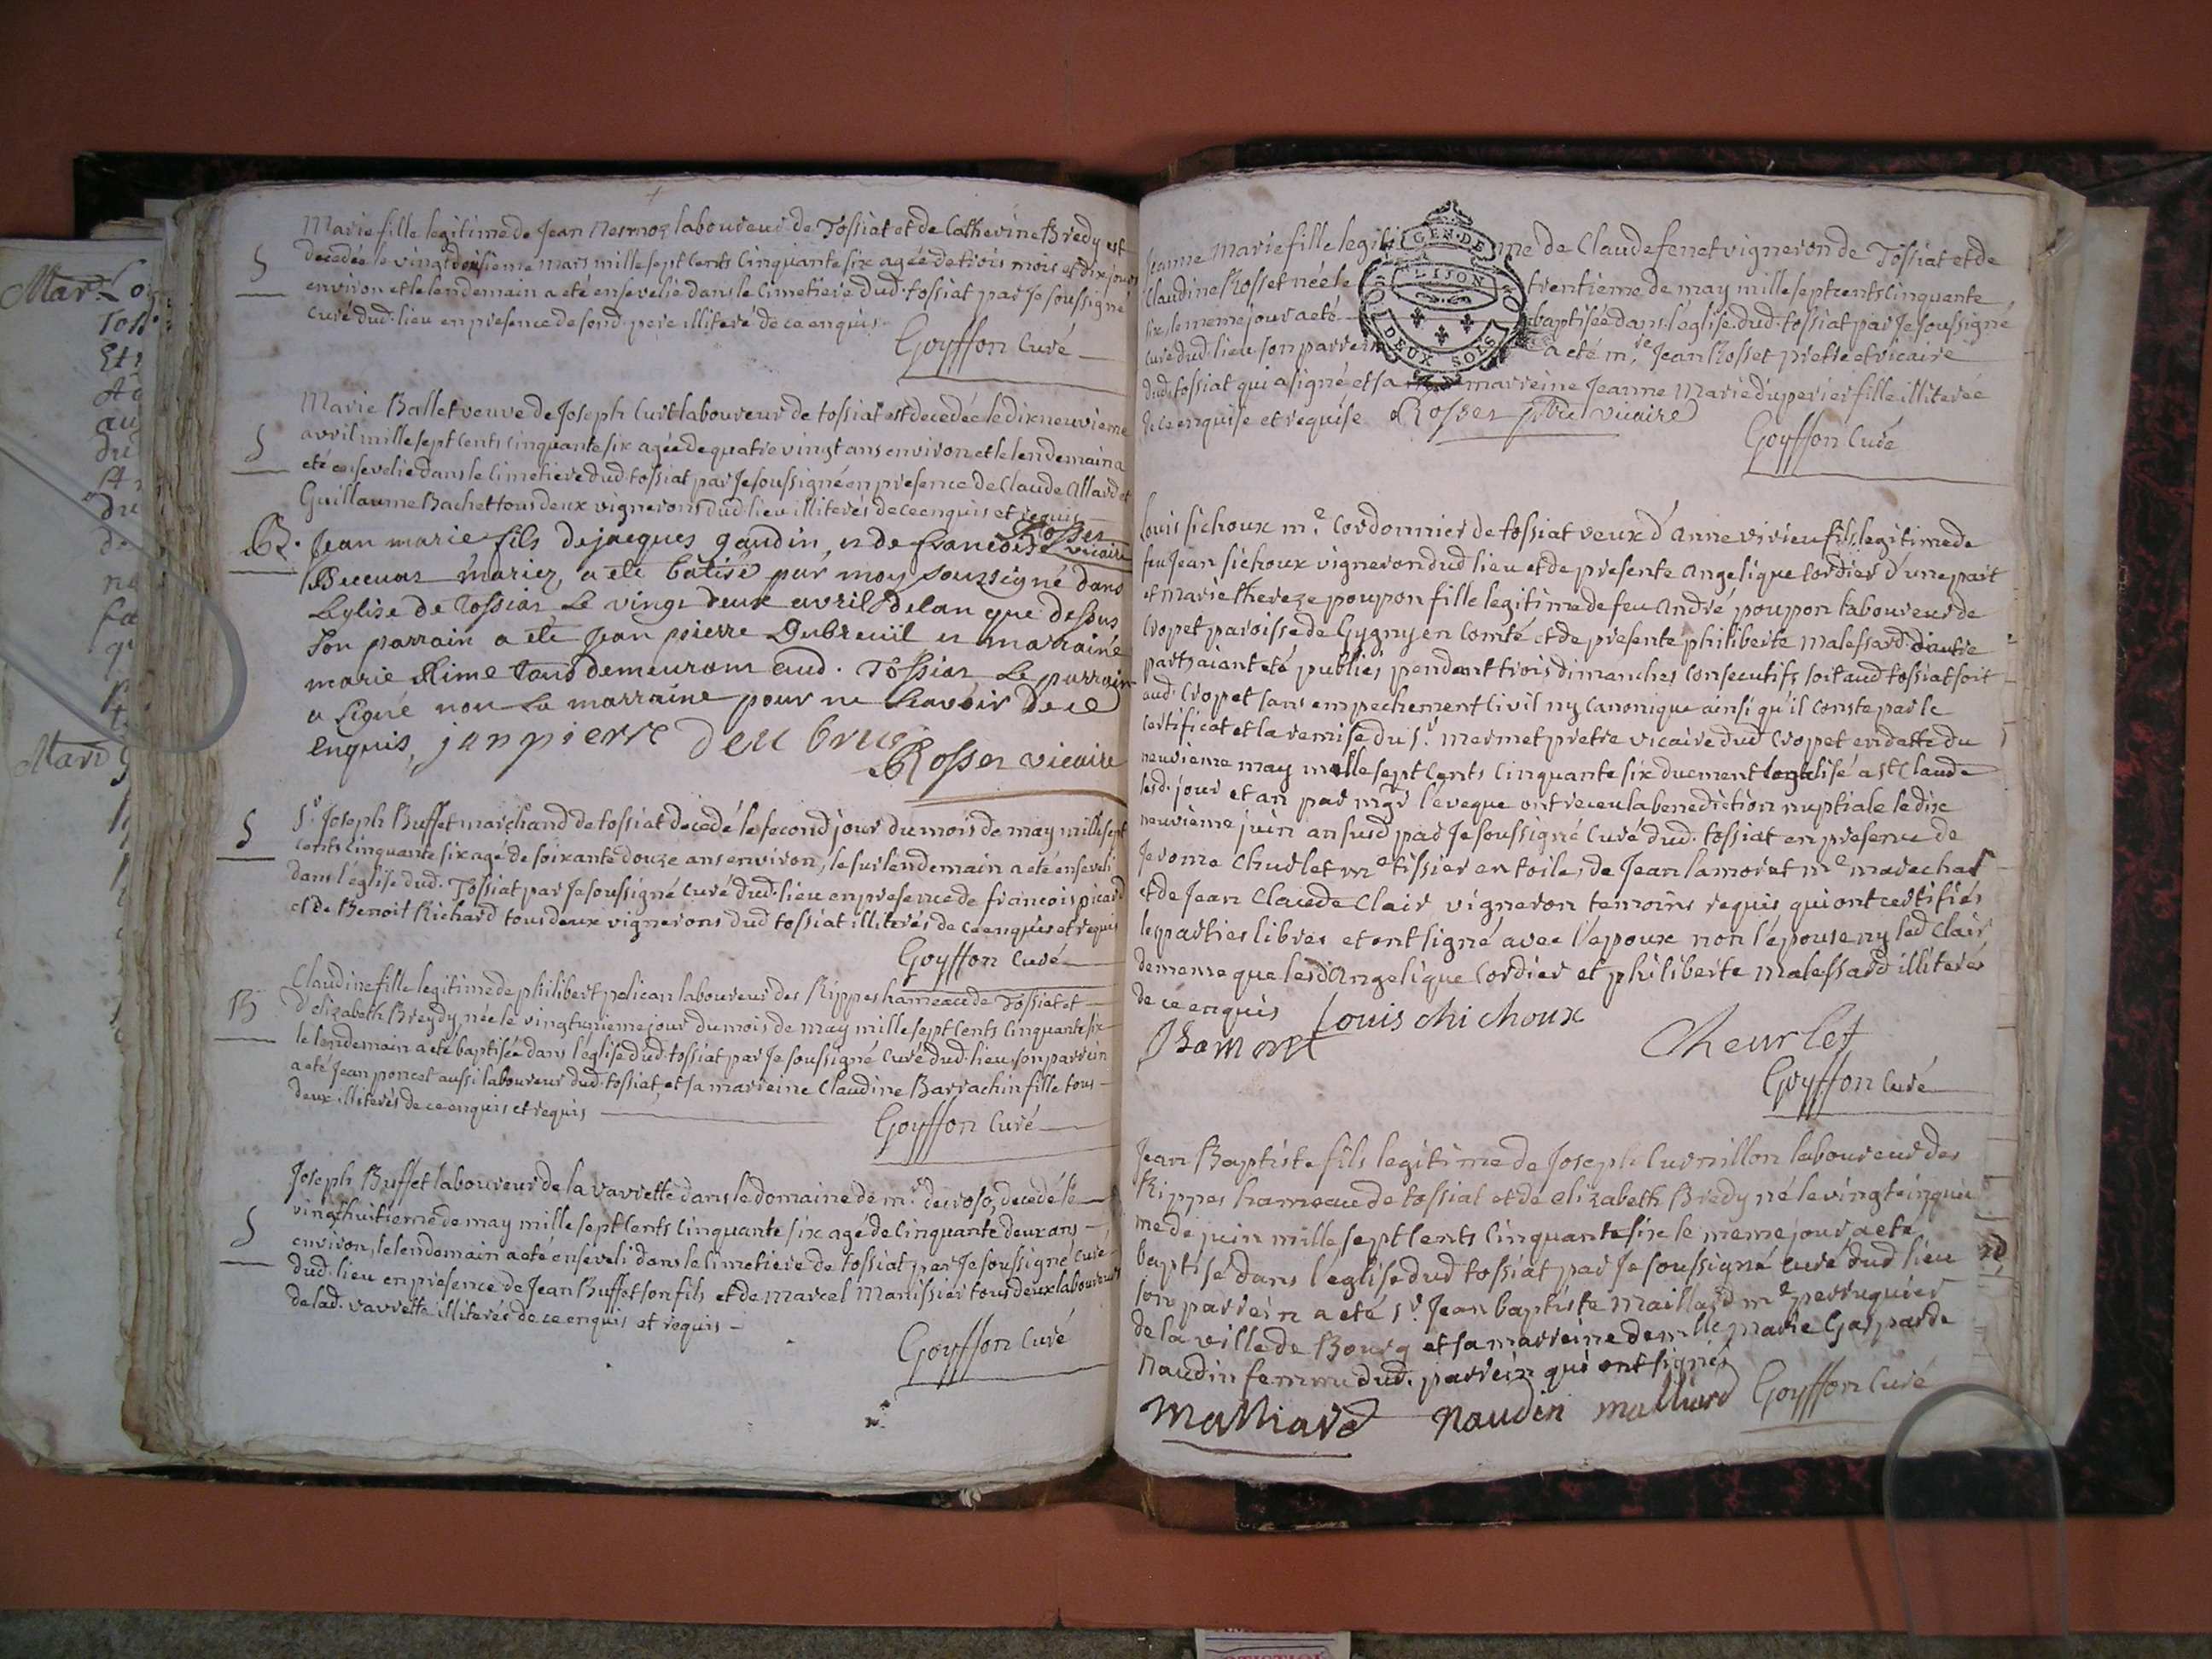 Marie fille legitime de Jean Nesmoz laboureur de Tossiat et de Catherine Bredy est
S decedée le vingt deusieme mars mille sept cents cinquante six agée de trois mois et dix jours
environ et le lendemain a eté ensevelie dans le cimetiere dud. tossiat par Je soussigné
curé dud. lieu en presence de sond. pere illiteré de ce enquis
Goyffon Curé
Marie Ballet veuve de Joseph Curt laboureur de tossiat est decedée le dix neuvieme
S avril mille sept cents cinquante six agée de quatre vingt ans environ et le lendemain a
eté ensevelie dans le cimetiere dud. tossiat par Je soussigné en presence de Claude Allard et
Guillaume Bachet tous deux vignerons dud. lieu illiterés de ce enquis et requis
Rosset vicaire
B. Jean marie fils de jacques gaudin, et de francoise
mariez, a eté batisé par moy soussigné dans
Leglise de Tossiat Le vingt deux avril de lan que dessus
son parrain a eté Jean pierre Dubreuil et marraine
marie Rime tous demeurant aud. Tossiat Le parrain
a signé non la marraine pour ne scavoir de ce
enquis, jan pierre deu brus
Rosset vicaire
S Sr. Joseph Buffet marchand de tossiat decedé le second jour du mois de may mille sept
cents cinquante six agé de soixante douze ans environ, le surlendemain a eté enseveli
dans l'église dud. Tossiat par Je soussigné Curé dud. lieu en presence de francois picard
et de Benoit Richard tous deux vignerons dud tossiat illiterés de ce enquis et requis
Goyffon Curé
Claudine fille legitime de philibert pelican laboureur des Rippes hameau de Tossiat et
B d'elizabeth Breydy née le vingt unieme jour du mois de may mille sept cents cinquante six
le lendemain a eté baptisée dans l'église dud. tossiat par Je soussigné Curé dud. lieu, son parrein
a eté Jean poncet aussi laboureur dud. tossiat, et sa marreine Claudine Barrachin fille tous
deux illiterés de ce enquis et requis
Goyffon Curé
Joseph Buffet laboureur de la vavrette dans le domaine de mr. decroso, decedé le
S vingt huitieme de may mille sept cents cinquante six agé de cinquante deux ans
environ, le lendemain a eté enseveli dans le cimetiere de tossiat par Je soussigné Curé
dud. lieu en presence de Jean Buffet son fils et de Marcel Manissier tous deux laboureurs
de lad. vavrette illiterés de ce enquis et requis
Goyffon Curé
GEN. DE DIJON
DEUX SOLS
Jeanne Marie fille legitime de Claude fenet vigneron de Tossiat et de
Claudine Rosset née le trentieme de may mille sept cents cinquante
six, le meme jour a eté baptisée dans l'eglise dud. tossiat par Je soussigné
curé dud. lieu son parrein a eté mre Jean Rosset pretre et vicaire
dud. tossiat qui a signé et sa marreine Jeanne Marie duperier fille illiterée
de ce enquise et requise Rosset pbre vicaire
Goyffon Curé
Louis sichoux me. Cordonnier de tossiat veux d'Anne vivieu fils legitime de
feu Jean sichoux vigneron dud lieu et de presente Angelique Cordier d'une part
et marie thereze poupon fille legitime de feu André poupon laboureur de
Cropet paroisse de Gygny en Comté et de presente philiberte Malessard d'autre
part, aiant eté publiés pendant trois dimanches consecutifs soit aud tossiat soit
aud. Cropet sans empechement Civil ny Canonique ainsi qu'il conste par le
certificat et la remise du Sr. mermet pretre vicaire dud Cropet en datte du
neuvieme may mille sept cents cinquante six duement legalisé a St Claude
lesd. jour et an par mgr l'eveque ont receu la benediction nuptiale le dix
neuvieme juin an susd par Je soussigné Curé dud. tossiat en presence de
Jerome Churlet me tissier en toile, de Jean lamoret me marechal
et de Jean Claude Clair vigneron temoins requis qui ont certifiés
les parties libres et ont signé avec l'epoux non l'épouse ny led Clair
de meme que lesd Angelique Cordier et philiberte malessard illiterés
de ce enquis Louis chichoux
Cheurlet
Goyffon Curé
Jean Baptiste fils legitime de Joseph Curnillon laboureur des
Rippes hameau de tossiat et de elizabeth Bredy né le vingt cinquie
me de juin mille sept cents cinquante six le meme jour a eté
baptisé dans l'eglise dud tossiat par Je soussigné Curé dud lieu
son parrein a eté Sr. Jean baptiste Maillard me perruquier
de la ville de Bourg et sa marreine demlle marie Gasparde
Naudin femme dud. parrein qui ont signés
Malliard Naudin malliard Goyffon Curé